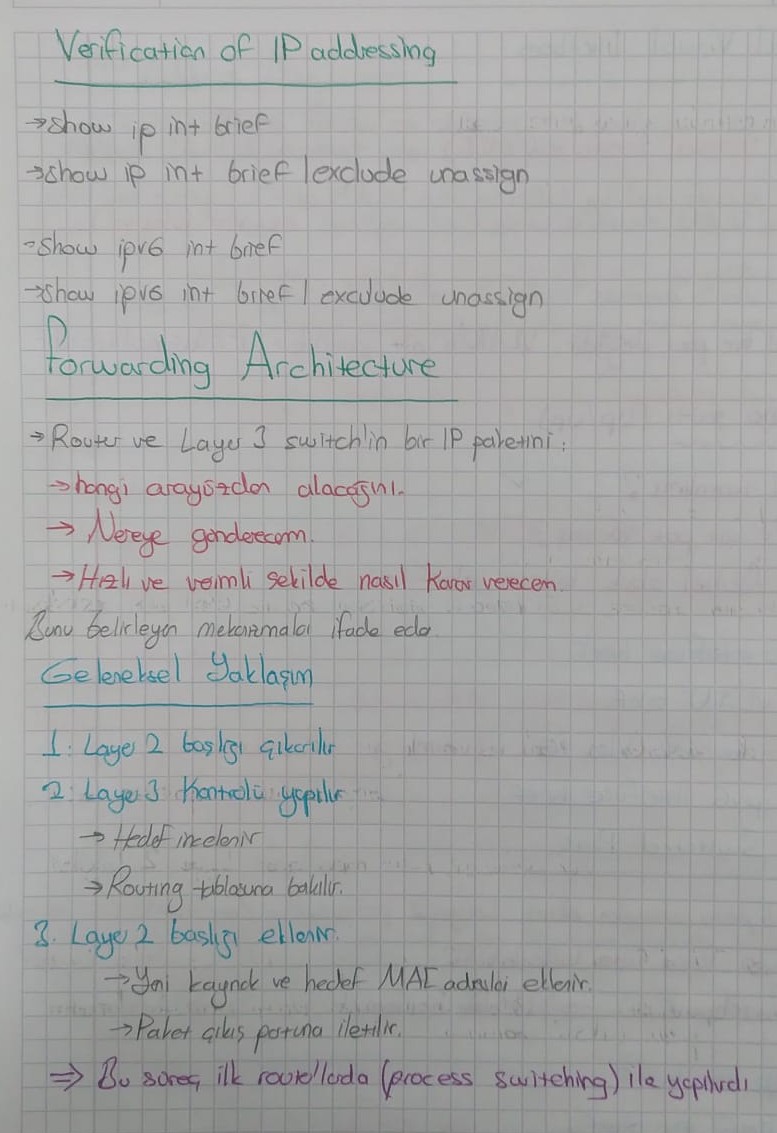 Verification of IP addressing
→show ip int brief
→show ip int brief |exclude unassign
→show ipv6 int brief
→show ipv6 int brief | exculude unassign
Forwarding Architecture
→ Router ve Layer 3 switch'in bir IP paketini:
→hangi arayüzden alacağını.
→ Nereye göndereceğini.
→Hızlı ve verimli şekilde nasıl Karar vereceğini.
Bunu belirleyen mekanizmaları ifade eder
Geleneksel Yaklaşım
1. Layer 2 başlığı çıkarılır
2. Layer 3 Kontrolü yapılır
→ Hedef incelenir
→ Routing tablosuna bakılır.
3. Layer 2 başlığı eklenir.
→Yeni kaynak ve hedef MAC adresleri eklenir.
→Paket çıkış portuna iletilir.
⇒ Bu süreç ilk router'larda (process switching) ile yapılırdı